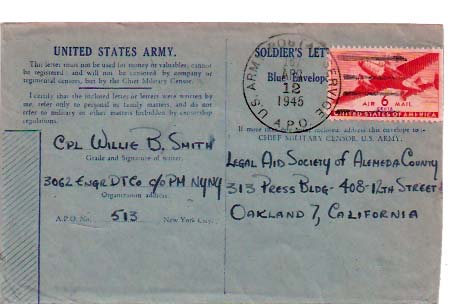 UNITED STATES ARMY.
This letter must not be used for money or valuables, cannot
be registered and will not be censored by company or
regimental censors, but by the Chief Military Censor.
I certify that the inclosed letter or letters were written by
me, refer only to personal or family matters, and do not
refer to military or other matters forbidden by censorship
regulations.
CPL WILLIE B. SMITH
Grade and Signature of writer.
3062 ENGR DT CO. c/o PM NY NY
Organization address.
A.P.O. No. 513 New York City.
SOLDIER'S LET
Blue Envelope
U.S. ARMY POSTAL SERVICE
APR
12
1945
A.P.O.
AIR 6 MAIL
CENTS
UNITED STATES OF AMERICA
If more than address this envelope to:-
CHIEF MILITARY CENSOR, U.S. ARMY.
LEGAL AID SOCIETY OF ALEMEDA COUNTY
313 PRESS BLDG- 408-12TH STREET
OAKLAND 7, CALIFORNIA